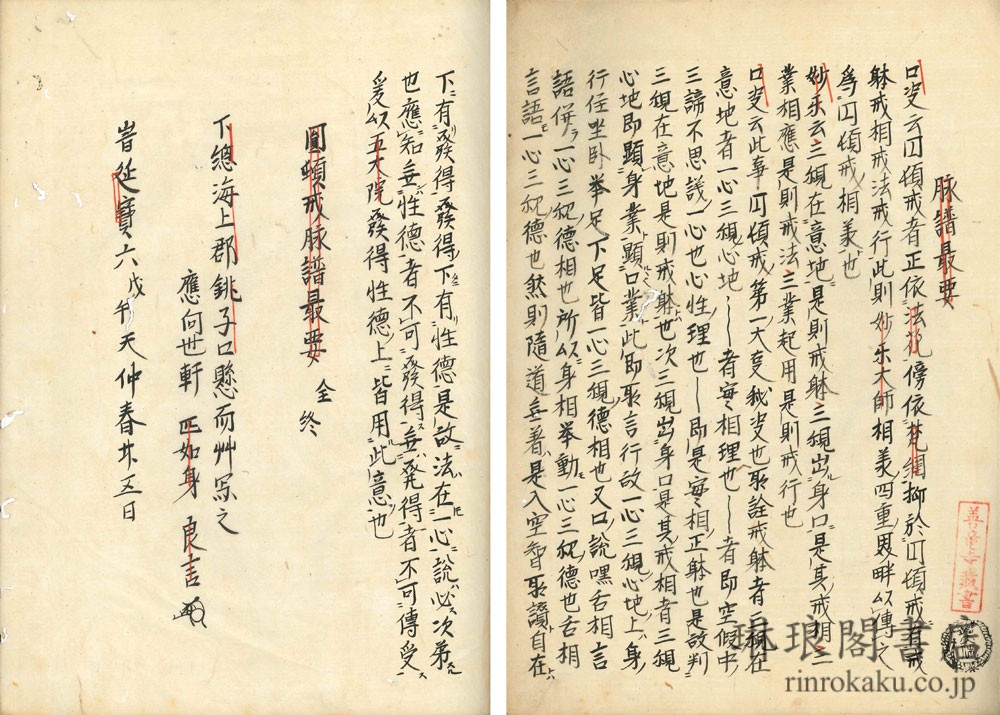 脉譜最要
口决云円頓戒者正依法花傍依梵網抑於円頓戒有戒
躰戒相戒法戒行此則妙樂大師相義四重以傳之
為円頓戒相義也
妙樂云三観在意地是則戒躰三観出身口是其戒相三
業相應是則戒法三業起用是則戒行也
口决云此事円頓戒第一大事秘决也所詮戒躰者三観在
意地者一心三観心地者実相理也者即空假中
三諦不思議一心也心性理也即是実相正躰也是故判
三観在意地是則戒躰也次三観出身口是其戒相者三観
心地即顕身業顕口業此即所言行故一心三観心地上身
行住坐卧挙足下足皆一心三観德相也又口說嘿舌相言
語併一心三観德相也所以身相挙動一心三観德也舌相
言語一心三観德也然則隨道無著是入空智所讀自在
下有發得發得下有性德是故法在一心說必次弟
也應知無性德者不可發得無発得者不可傳受
爰以五大院發得性德上皆用此意也
圓頓戒脉譜最要 全
終
下總海上郡銚子口懸而艸写之
應向世軒 匹如身 良吉
旹延寶六戊午天仲春廿五日
善 寺藏書
琳琅閣書店
rinrokaku.co.jp